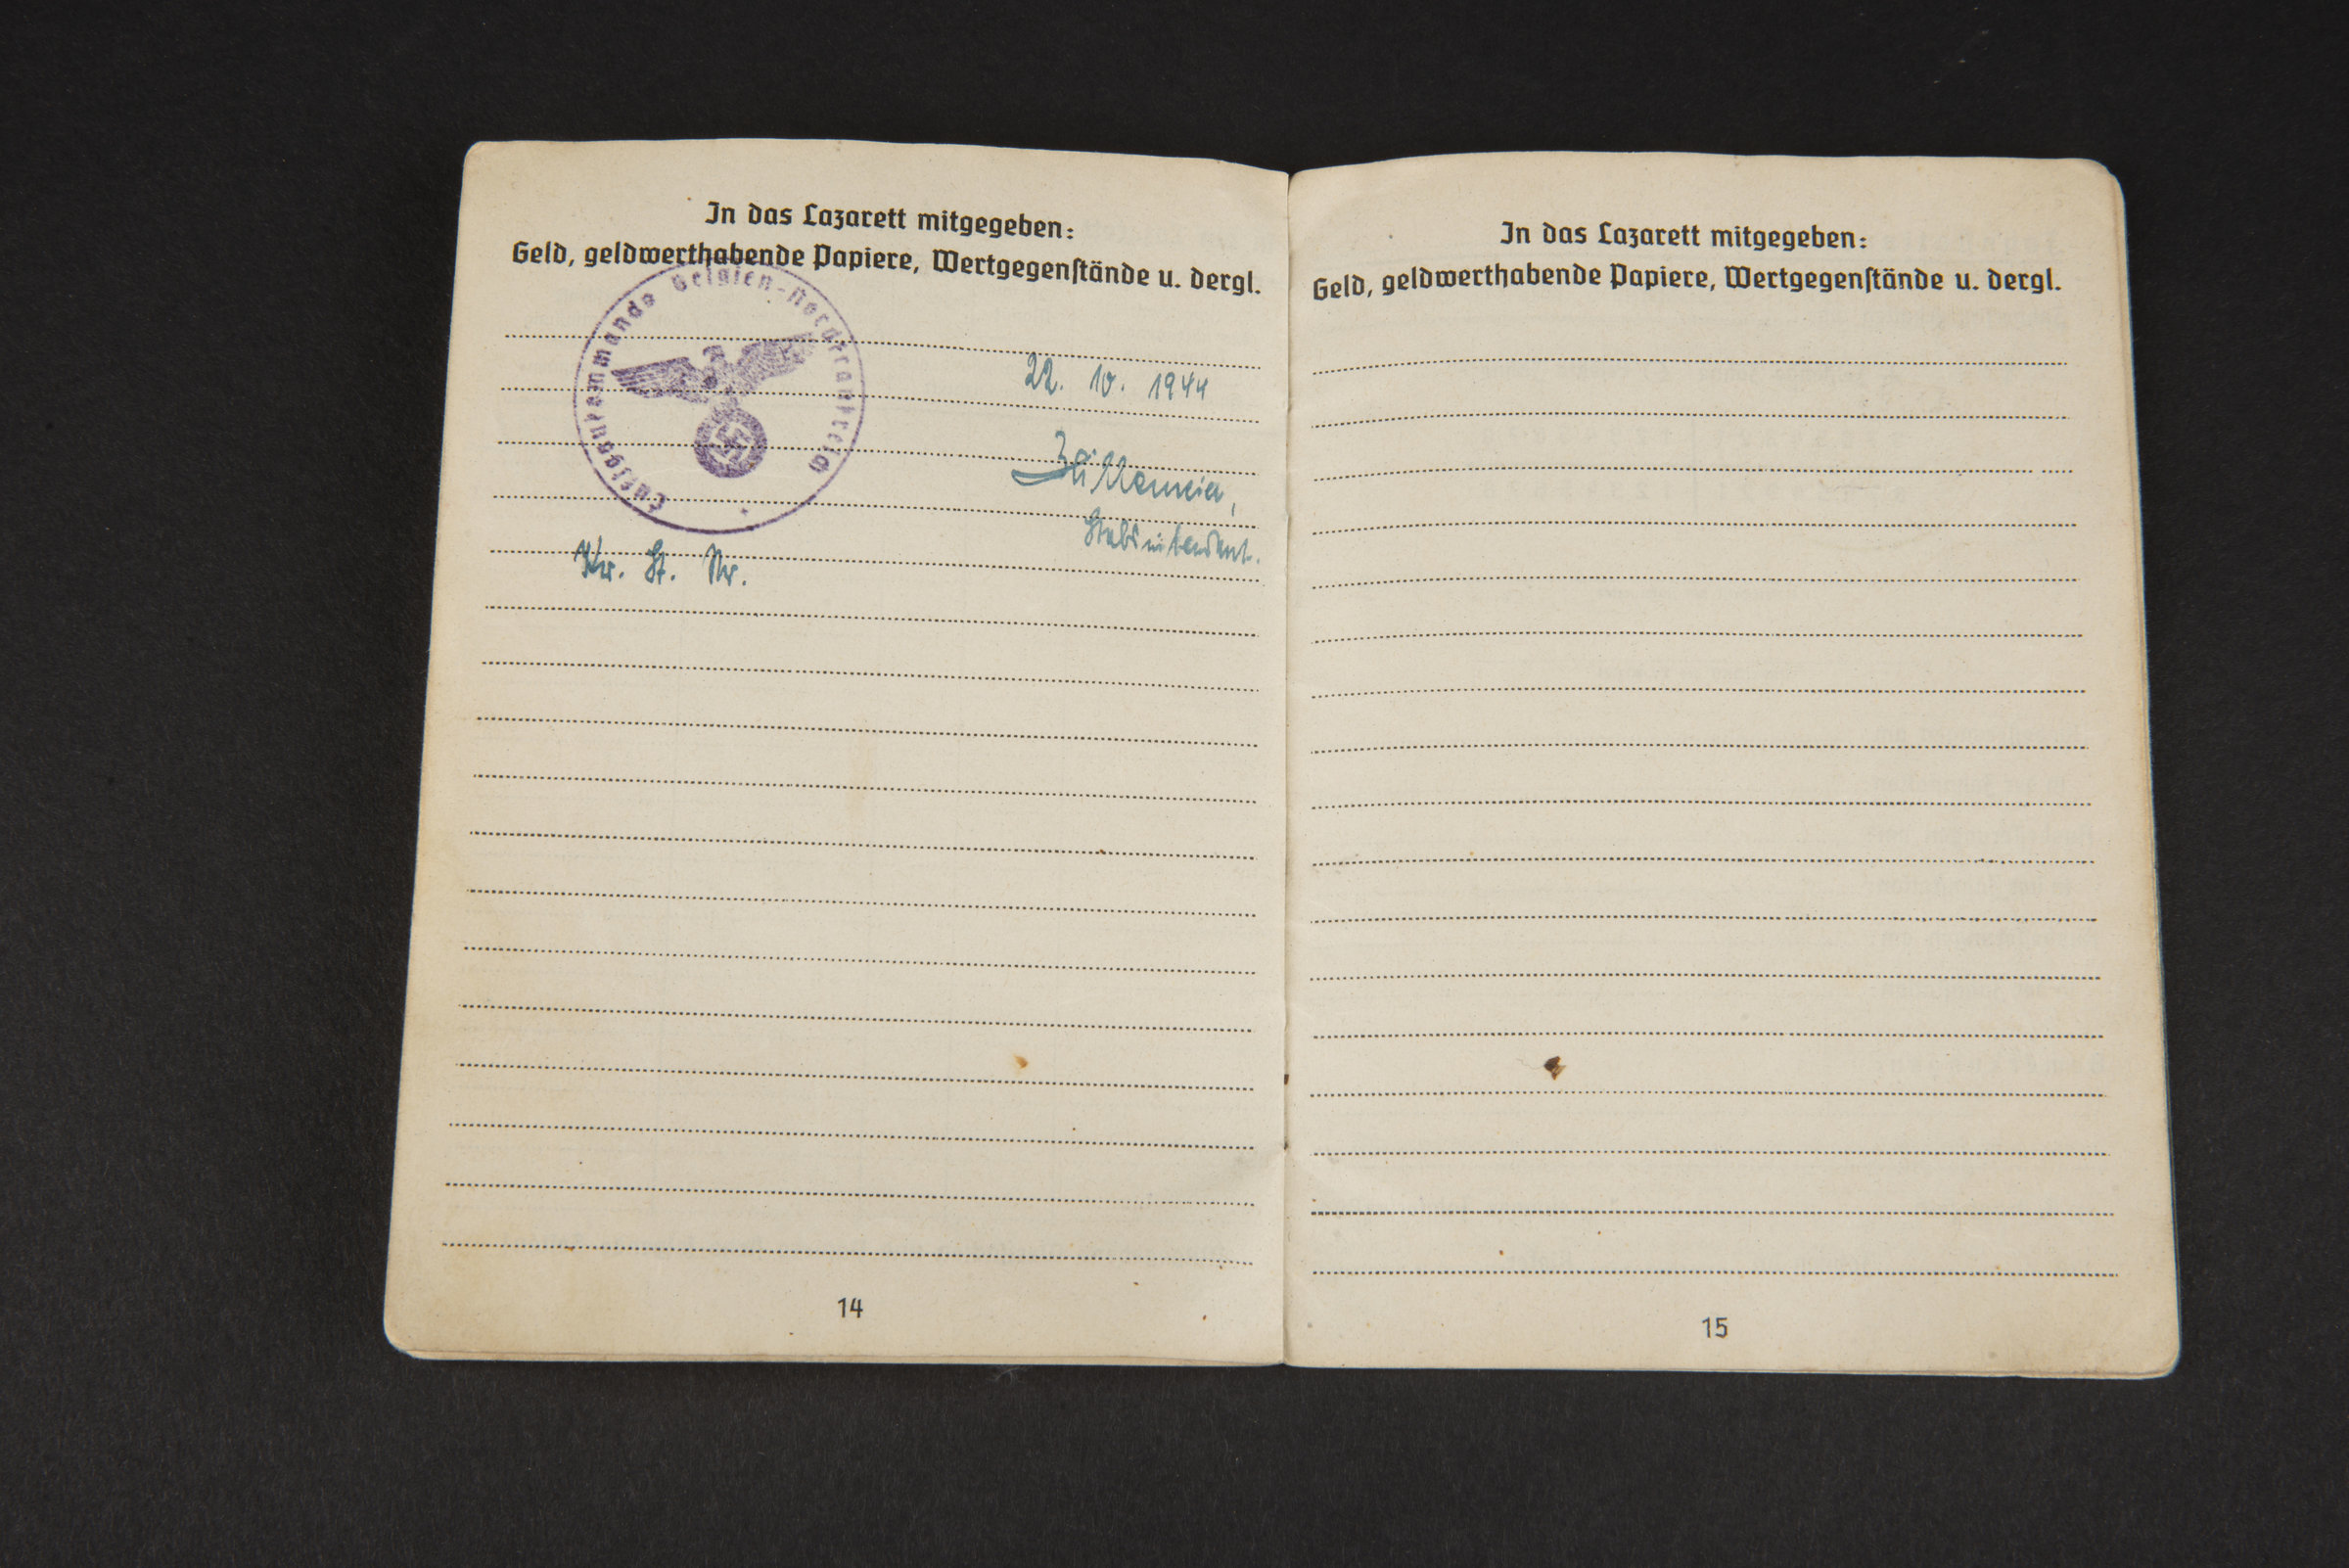 In das Lazarett mitgegeben:
Geld, geldwerthabende Papiere, Wertgegenſtände u. dergl.
Luftgaukommando Belgien-Nordfrankreich
22. 10. 1944
Stabsintendant.
Kr. St. Nr.
14
In das Lazarett mitgegeben:
Geld, geldwerthabende Papiere, Wertgegenſtände u. dergl.
15